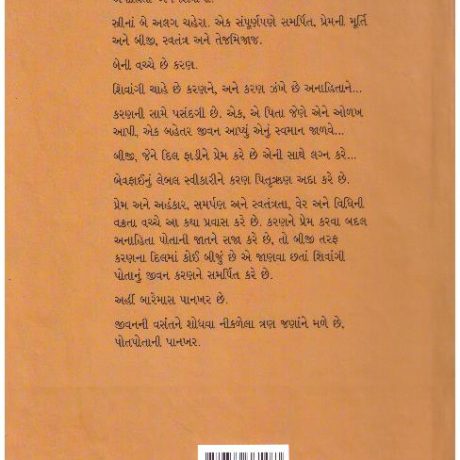 સ્ત્રીનાં બે અલગ ચહેરા. એક સંપૂર્ણપણે સમર્પિત, પ્રેમની મૂર્તિ
અને બીજી, સ્વતંત્ર અને તેજમિજાજ.
બેની વચ્ચે છે કરણ.
શિવાંગી ચાહે છે કરણને, અને કરણ ઝંખે છે અનાહિતાને...
કરણની સામે પસંદગી છે. એક, એ પિતા જેણે એને ઓળખ
આપી, એક બહેતર જીવન આપ્યું એનું સ્વમાન જાળવે...
બીજી, જેને દિલ ફાડીને પ્રેમ કરે છે એની સાથે લગ્ન કરે...
બેવફાઈનું લેબલ સ્વીકારીને કરણ પિતૃઋણ અદા કરે છે.
પ્રેમ અને અહંકાર, સમર્પણ અને સ્વતંત્રતા, વેર અને વિધિની
વક્રતા વચ્ચે આ કથા પ્રવાસ કરે છે. કરણને પ્રેમ કરવા બદલ
અનાહિતા પોતાની જાતને સજા કરે છે, તો બીજી તરફ
કરણના દિલમાં કોઈ બીજું છે એ જાણવા છતાં શિવાંગી
પોતાનું જીવન કરણને સમર્પિત કરે છે.
અહીં બારેમાસ પાનખર છે.
જીવનની વસંતને શોધવા નીકળેલા ત્રણ જણાંને મળે છે,
પોતપોતાની પાનખર.